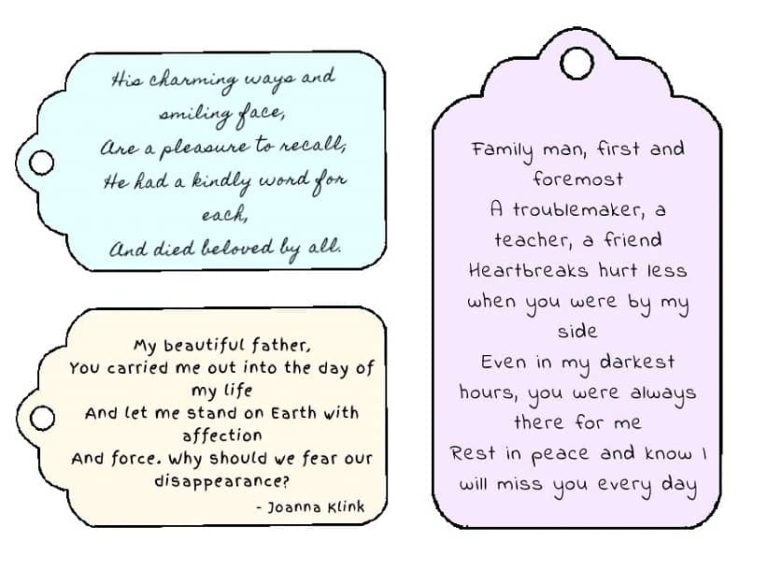 His charming ways and
smiling face,
Are a pleasure to recall,
He had a kindly word for
each,
And died beloved by all.
My beautiful father,
You carried me out into the day of
my life
And let me stand on Earth with
affection
And force. Why should we fear our
disappearance?
- Joanna Klink
Family man, first and
foremost
A troublemaker, a
teacher, a friend
Heartbreaks hurt less
when you were by my
side
Even in my darkest
hours, you were always
there for me
Rest in peace and know I
will miss you every day